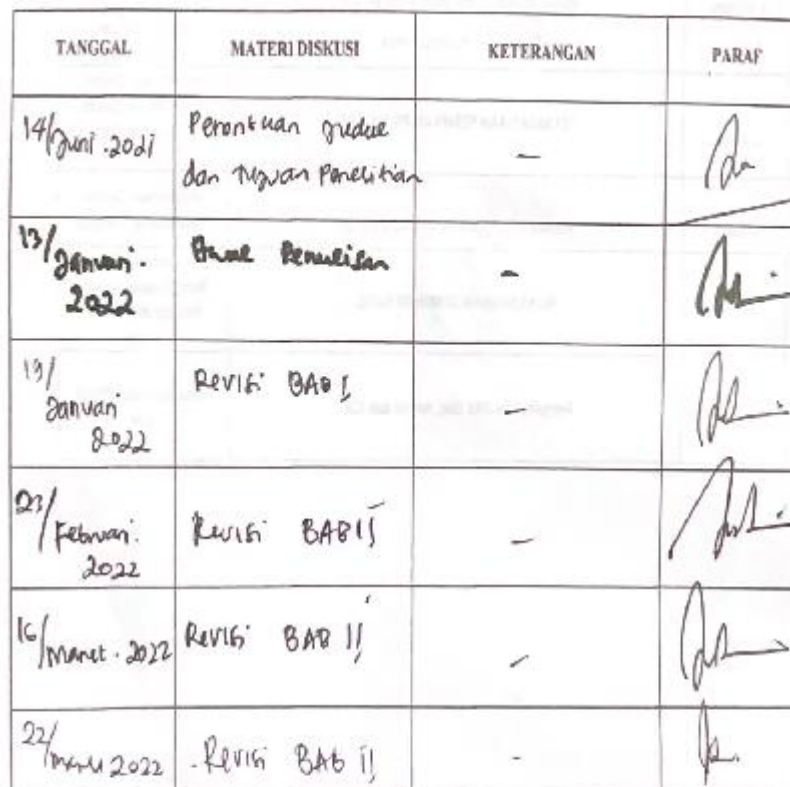 TANGGAL MATERI DISKUSI KETERANGAN PARAF
14/Juni.2021 Penentuan Judul -
dan Tujuan Penelitian
13/Januari. Penulisan -
2022
19/ Revisi BAB I -
Januari
2022
23/Februari. Revisi BAB II -
2022
16/Maret.2022 Revisi BAB II -
22/Maret 2022 Revisi BAB II -